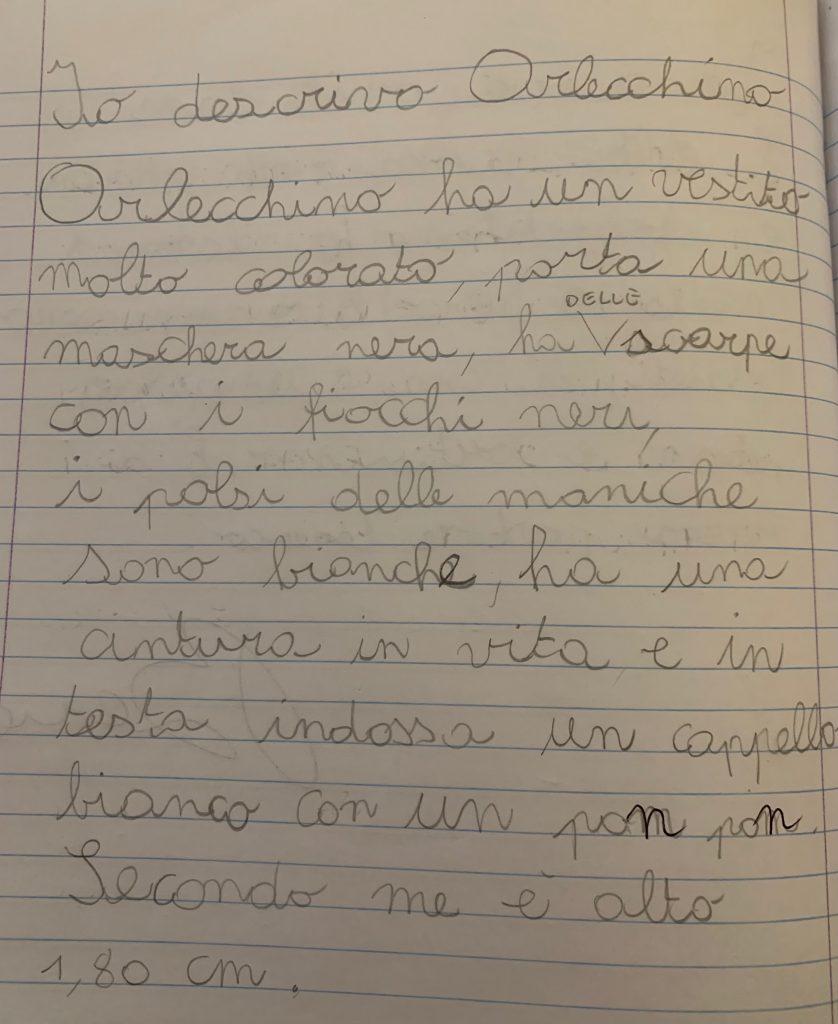 Io descrivo Orlecchino
Orlecchino ha un vestito
molto colorato, porta una
maschera nera, ha DELLE scarpe
con i fiocchi neri,
i polsi delle maniche
sono bianche, ha una
cintura in vita e in
testa indossa un cappello
bianco con un pom pom.
Secondo me è alto
1,80 cm.